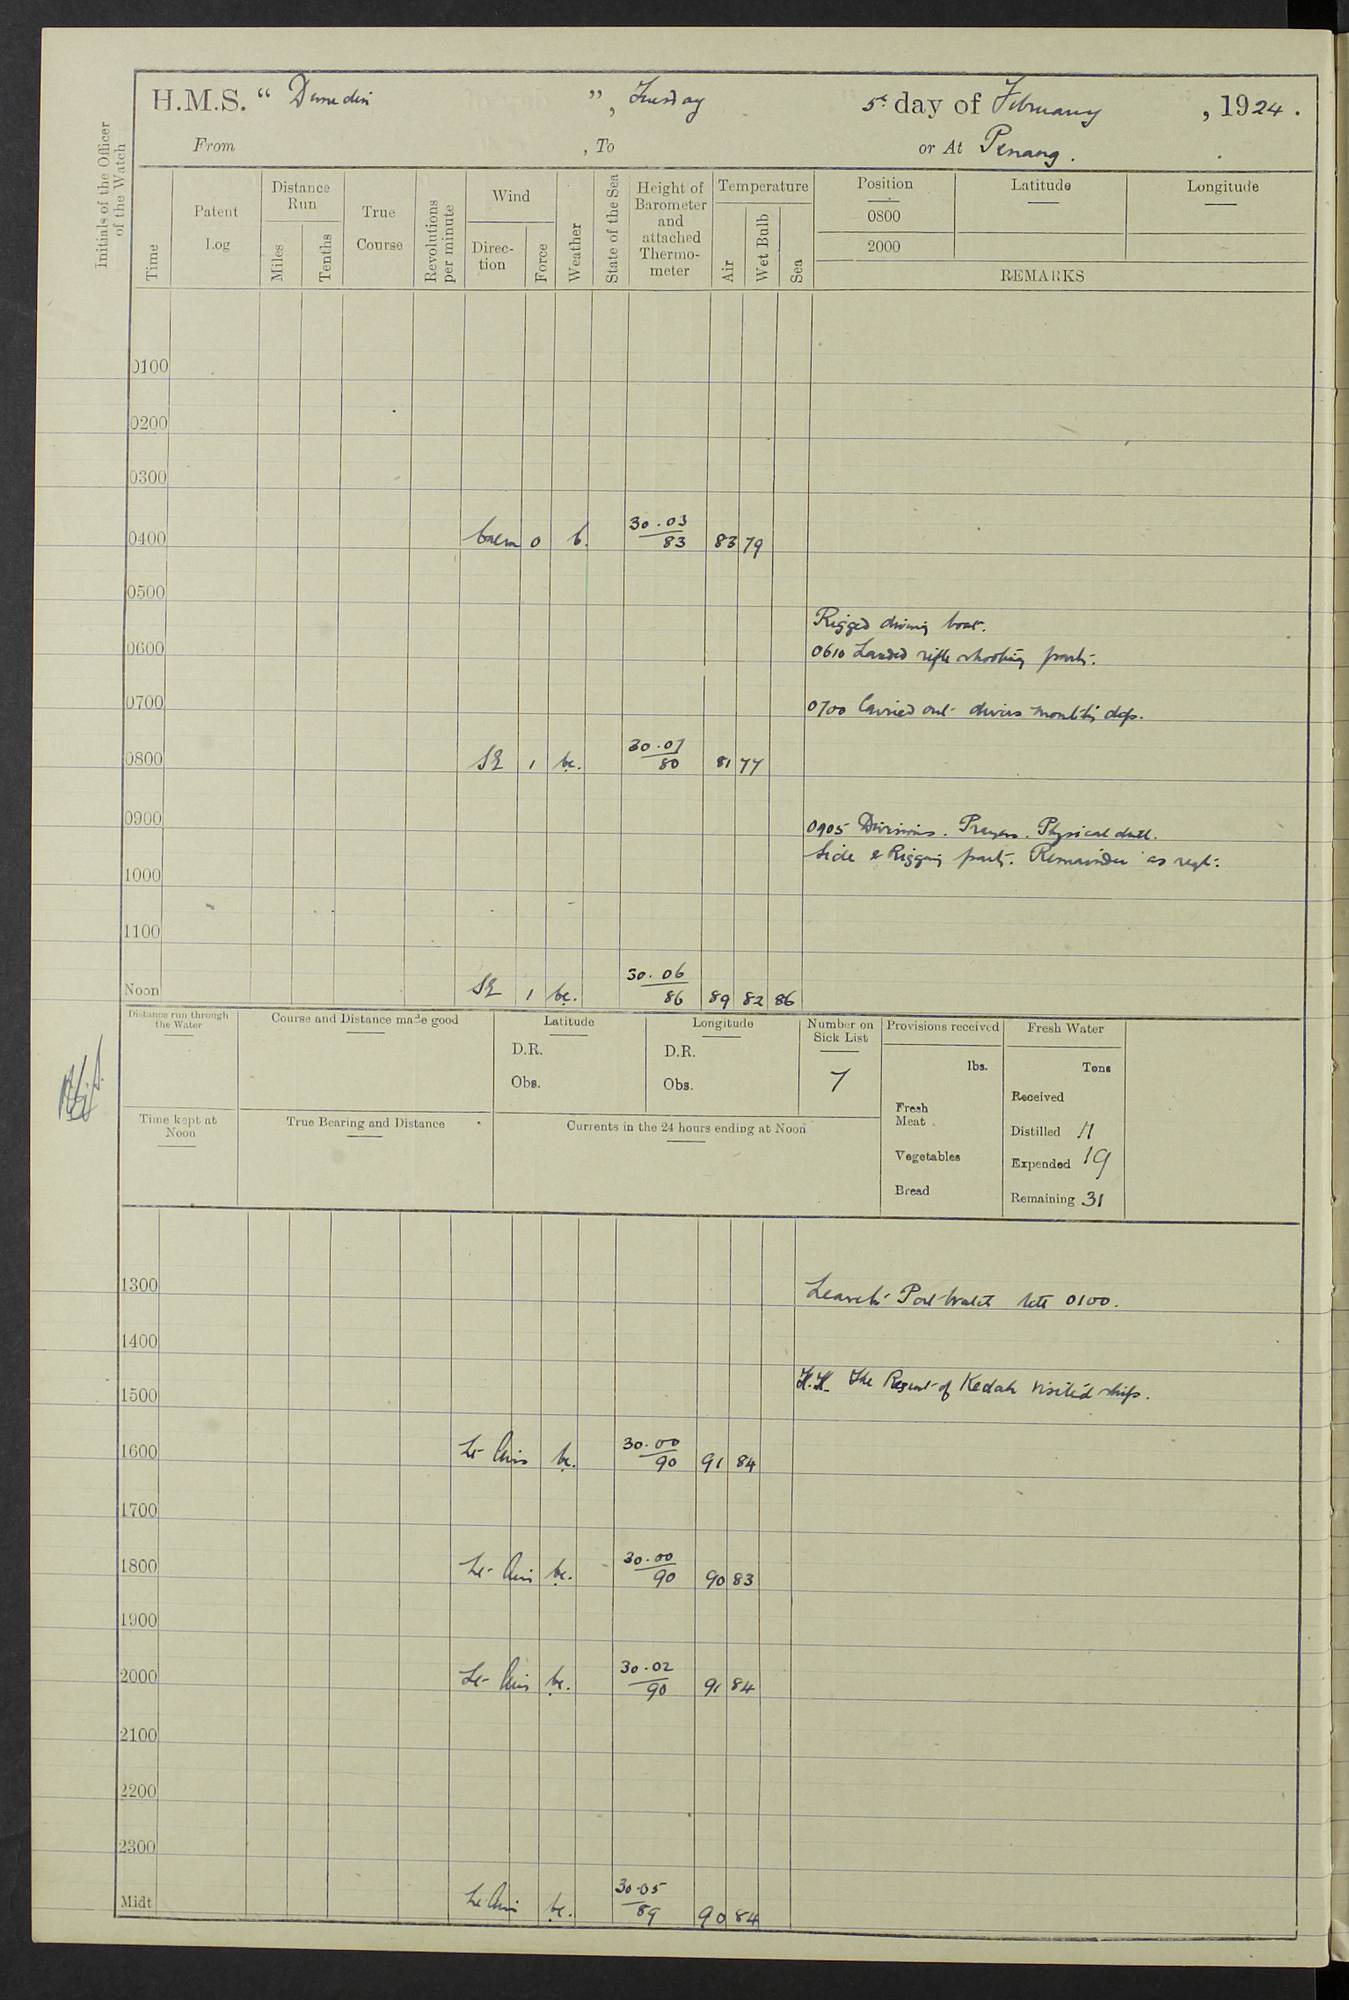 H.M.S. “ Dunedin ”, Tuesday 5th day of February, 1924.
From , To or At Penang.
Initials of the Officer of the Watch
Time
Patent Log
Distance Run
Miles
Tenths
True Course
Revolutions per minute
Wind
Direction
Force
Weather
State of the Sea
Height of Barometer and attached Thermometer
Temperature
Air
Wet Bulb
Sea
Position
0800
2000
Latitude
Longitude
REMARKS
0100
0200
0300
0400 Calm 0 b. 30.03 83 83 79
0500
Rigged diving boat.
0600 0610 Landed rifle shooting party.
0700 0700 Carried out divers monthly dips.
0800 SE 1 bc. 30.07 80 81 77
0900 0905 Divisions. Prayers. Physical drill.
Side & Rigging party. Remainder as reqt.
1000
1100
Noon SE 1 bc. 30.06 86 89 82 86
Distance run through the Water
Course and Distance made good
Latitude
D.R.
Obs.
Longitude
D.R.
Obs.
Number on Sick List
7
Provisions received
lbs.
Fresh Meat
Vegetables
Bread
Fresh Water
Tons
Received
Distilled 11
Expended 19
Remaining 31
Time kept at Noon
True Bearing and Distance
Currents in the 24 hours ending at Noon
1300 Leave to Port watch till 0100.
1400
1500 H.H. The Regent of Kedah visited ship.
1600 Lt Airs bc. 30.00 90 91 84
1700
1800 Lt Airs bc. 30.00 90 90 83
1900
2000 Lt Airs bc. 30.02 90 91 84
2100
2200
2300
Midt Lt Airs bc. 30.05 89 90 84